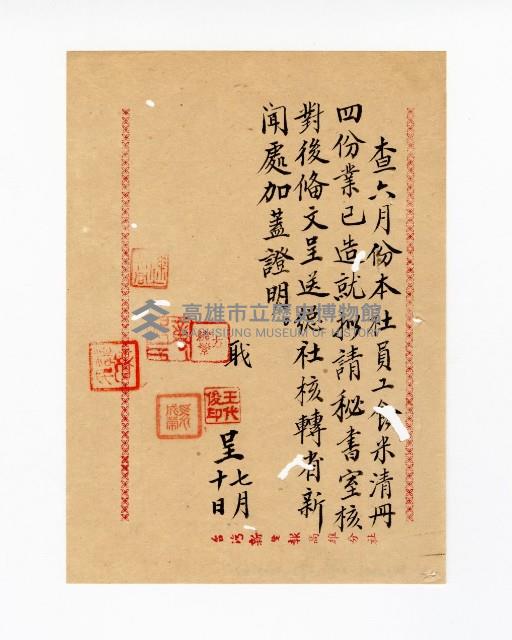 查六月份本社員工食米清冊
四份業已造就擬請秘書室核
對後俻文呈送總社核轉省新
聞處加蓋證明。
職
王代
俊印
呈 七月
十日
台灣新生報高雄分社
高雄市立歷史博物館
KAOHSIUNG MUSEUM OF HISTORY